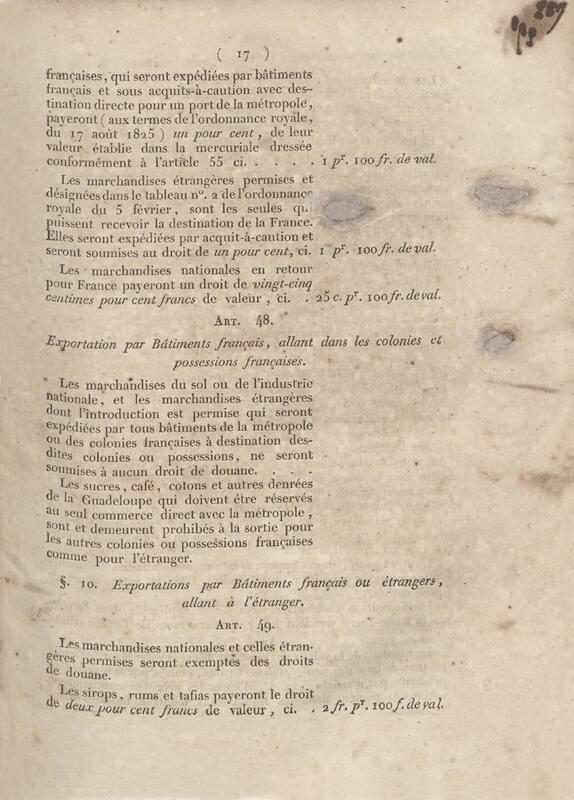 ( 17 )
françaises, qui seront expédiées par bâtiments
français et sous acquits-à-caution avec des-
tination directe pour un port de la métropole,
payeront ( aux termes de l'ordonnance royale,
du 17 août 1825 ) un pour cent, de leur
valeur établie dans la mercuriale dressée
conformément à l'article 55 ci. . . . . 1 pr. 100 fr. de val.
Les marchandises étrangères permises et
désignées dans le tableau no. 2 de l'ordonnance
royale du 5 février, sont les seules qui
puissent recevoir la destination de la France.
Elles seront expédiées par acquit-à-caution et
seront soumises au droit de un pour cent, ci. 1 pr. 100 fr. de val.
Les marchandises nationales en retour
pour France payeront un droit de vingt-cinq
centimes pour cent francs de valeur, ci. . 25 c. pr. 100 fr. de val.
ART. 48.
Exportation par Bâtiments français, allant dans les colonies et
possessions françaises.
Les marchandises du sol ou de l'industrie
nationale, et les marchandises étrangères
dont l'introduction est permise qui seront
expédiées par tous bâtiments de la métropole
ou des colonies françaises à destination des-
dites colonies ou possessions, ne seront
soumises à aucun droit de douane. . . .
Les sucres, café, cotons et autres denrées
de la Guadeloupe qui doivent être réservés
au seul commerce direct avec la métropole,
sont et demeurent prohibés à la sortie pour
les autres colonies ou possessions françaises
comme pour l'étranger.
§. 10. Exportations par Bâtiments français ou étrangers,
allant à l'étranger.
ART. 49.
Les marchandises nationales et celles étran-
gères permises seront exemptés des droits
de douane.
Les sirops, rums et tafias payeront le droit
de deux pour cent francs de valeur, ci. . 2 fr. pr. 100 f. de val.